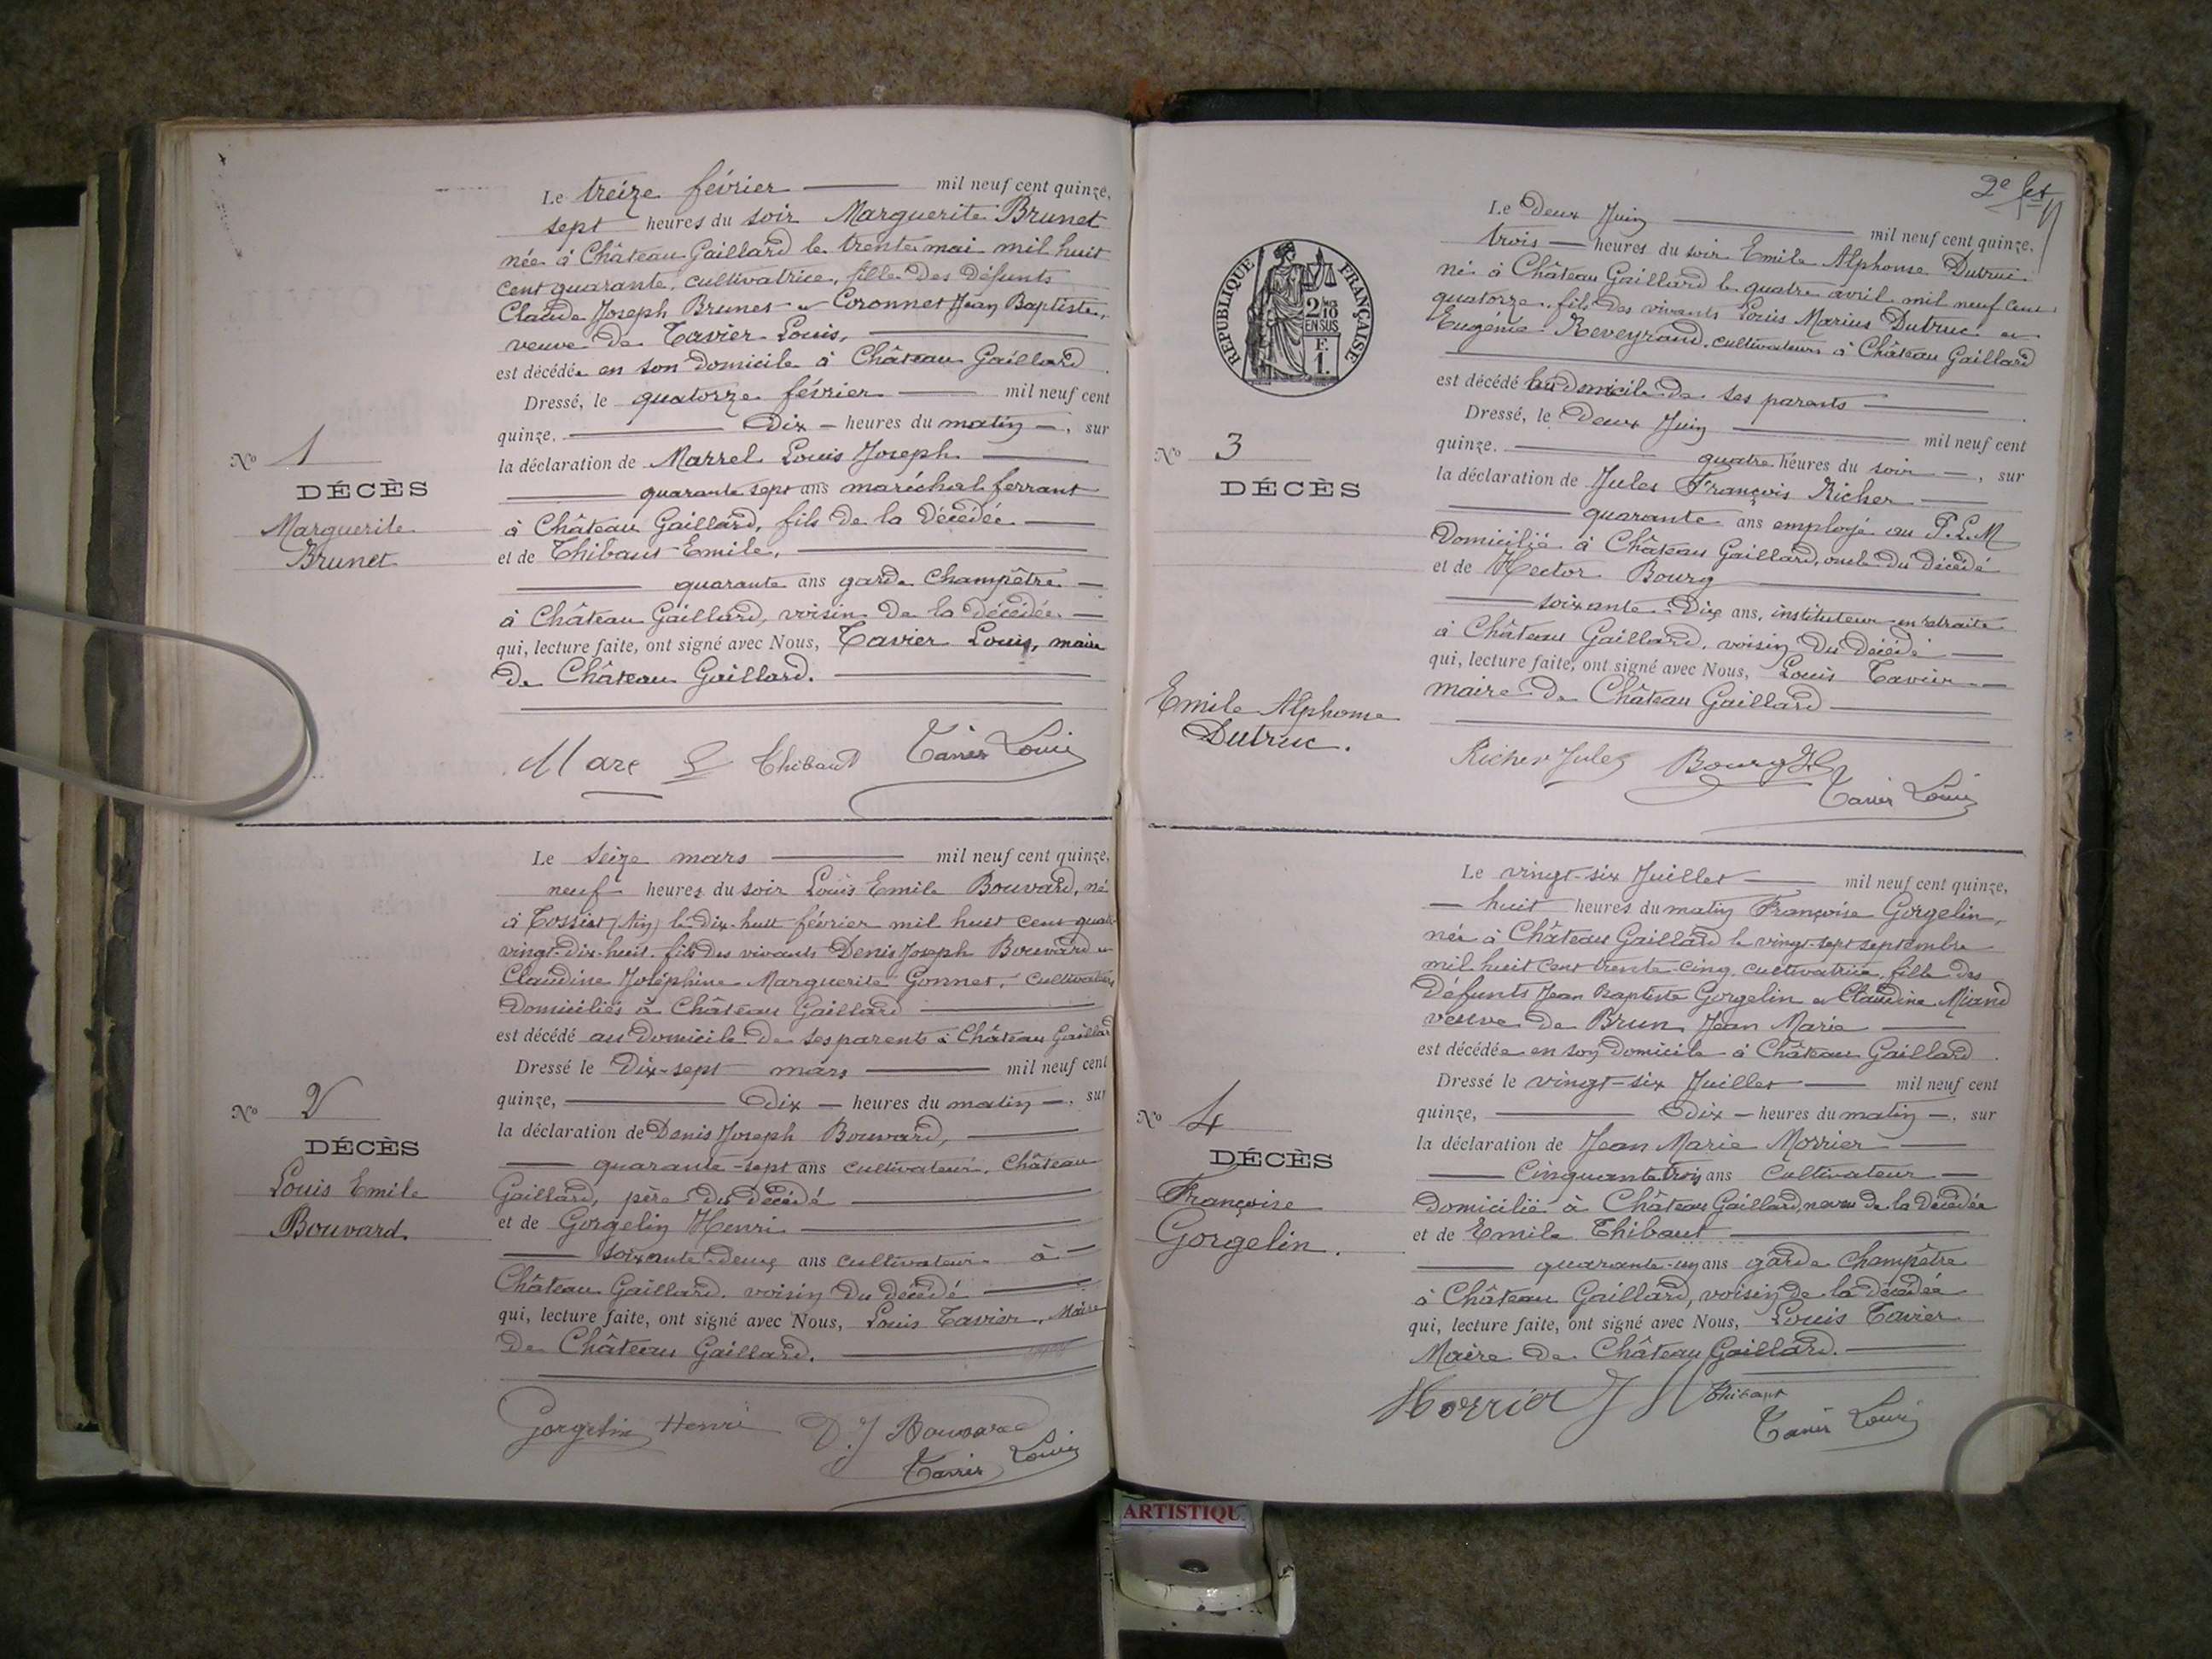 Le treize février mil neuf cent quinze,
sept heures du soir Marguerite Brunet
née à Château Gaillard le trente mai mil huit
cent quarante, cultivatrice, fille des défunts
Claude Joseph Brunet et Coronnet Jean Baptiste,
veuve de Tavier Louis,
est décédée en son domicile à Château Gaillard.
Dressé, le quatorze février mil neuf cent
quinze, Dix heures du matin, sur
la déclaration de Marrel Louis Joseph
quarante sept ans maréchal ferrant
à Château Gaillard, fils de la décédée
et de Thibaut Emile,
quarante ans garde champêtre
à Château Gaillard, voisin de la décédée
qui, lecture faite, ont signé avec Nous, Tavier Louis, maire
de Château Gaillard.
No 1
DÉCÈS
Marguerite
Brunet
Thibaut Tavier Louis
Le seize mars mil neuf cent quinze,
neuf heures du soir Louis Emile Bouvard, né
à Tossiat (Ain) le dix-huit février mil huit cent quatre
vingt-dix-huit, fils des vivants Denis Joseph Bouvard et
Claudine Joséphine Marguerite Gonnet, cultivateurs
domiciliés à Château Gaillard
est décédé au domicile de ses parents à Château Gaillard
Dressé le Dix-sept mars mil neuf cent
quinze, Dix heures du matin, sur
la déclaration de Denis Joseph Bouvard,
quarante-sept ans cultivateur, Château
Gaillard, père du décédé
et de Gorgelin Henri
soixante-deux ans cultivateur à
Château Gaillard, voisin du décédé
qui, lecture faite, ont signé avec Nous, Louis Tavier, Maire
de Château Gaillard.
No 2
DÉCÈS
Louis Emile
Bouvard.
Gorgelin Henri D. J Bouvard
Tavier Louis
2e
RÉPUBLIQUE FRANÇAISE
2/10
EN SUS
F.
1.
Le Deux Juin mil neuf cent quinze,
trois heures du soir Emile Alphonse Dutruc
né à Château Gaillard le quatre avril mil neuf cent
quatorze, fils des vivants Louis Marius Dutruc et
Eugénie Reveyrand, cultivateurs à Château Gaillard
est décédé au domicile de ses parents
Dressé, le Deux Juin mil neuf cent
quinze, quatre heures du soir, sur
la déclaration de Jules François Richer
quarante ans employé au P.L.M
domicilié à Château Gaillard, oncle du décédé
et de Hector Bourg
soixante-Dix ans, instituteur en retraite
à Château Gaillard, voisin du décédé
qui, lecture faite, ont signé avec Nous, Louis Tavier
maire de Château Gaillard
No 3
DÉCÈS
Emile Alphonse
Dutruc.
Richer Jules Bourg
Tavier Louis
Le vingt-six Juillet mil neuf cent quinze,
huit heures du matin Françoise Gorgelin,
née à Château Gaillard le vingt-sept septembre
mil huit cent trente-cinq, cultivatrice, fille des
défunts Jean Baptiste Gorgelin et Claudine Miand
veuve de Brun Jean Marie
est décédée en son domicile à Château Gaillard.
Dressé le vingt-six Juillet mil neuf cent
quinze, Dix heures du matin, sur
la déclaration de Jean Marie Morrier
Cinquante trois ans Cultivateur
domicilié à Château Gaillard, neveu de la décédée
et de Emile Thibaut
quarante-un ans garde champêtre
à Château Gaillard, voisin de la décédée
qui, lecture faite, ont signé avec Nous, Louis Tavier
Maire de Château Gaillard.
No 4
DÉCÈS
Françoise
Gorgelin.
Morrier J M Thibaut
Tavier Louis
ARTISTIQU